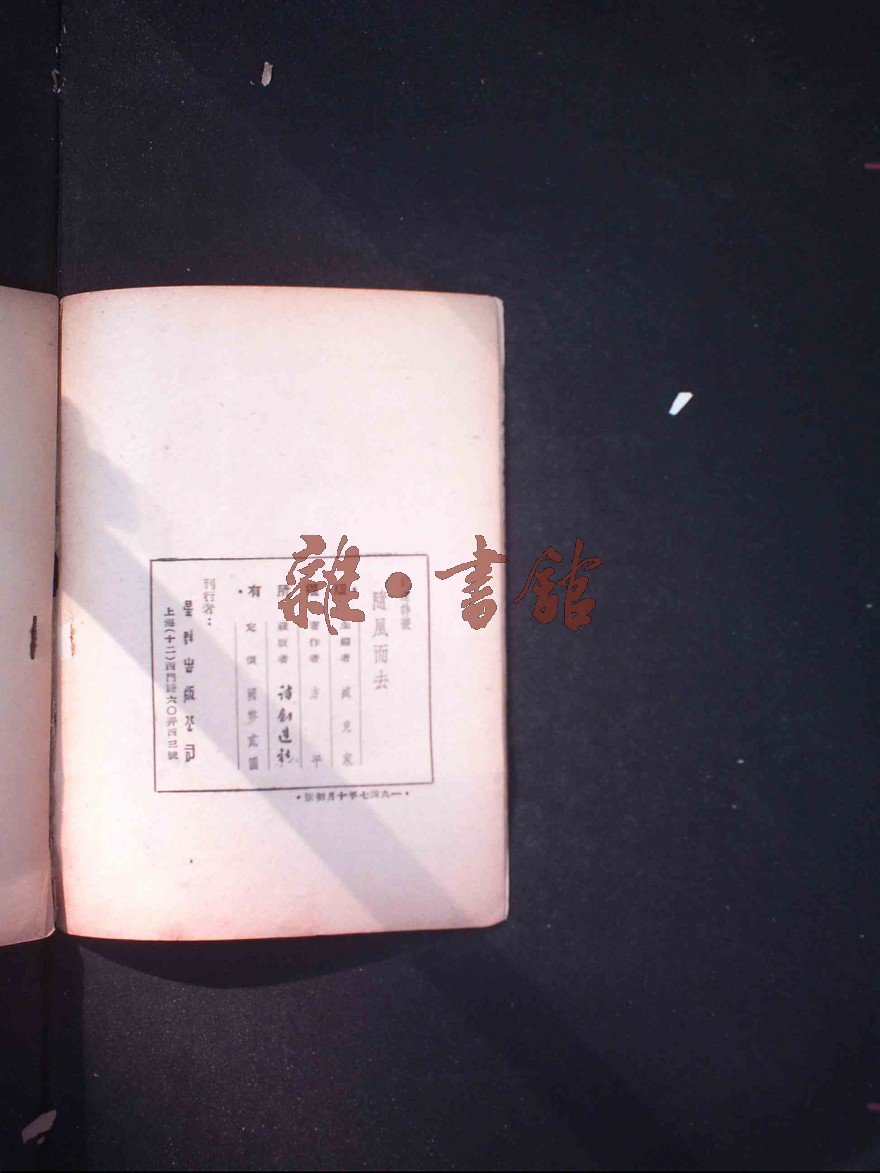 隨風而去
·版權所有·
主編者 臧克家
著作者 方平
出版者 詩創造社
定價 國幣貳圓
刊行者：
星群出版公司
上海(十二)西門路六〇弄四三號
·一九四七年十月初版·
雜·書館